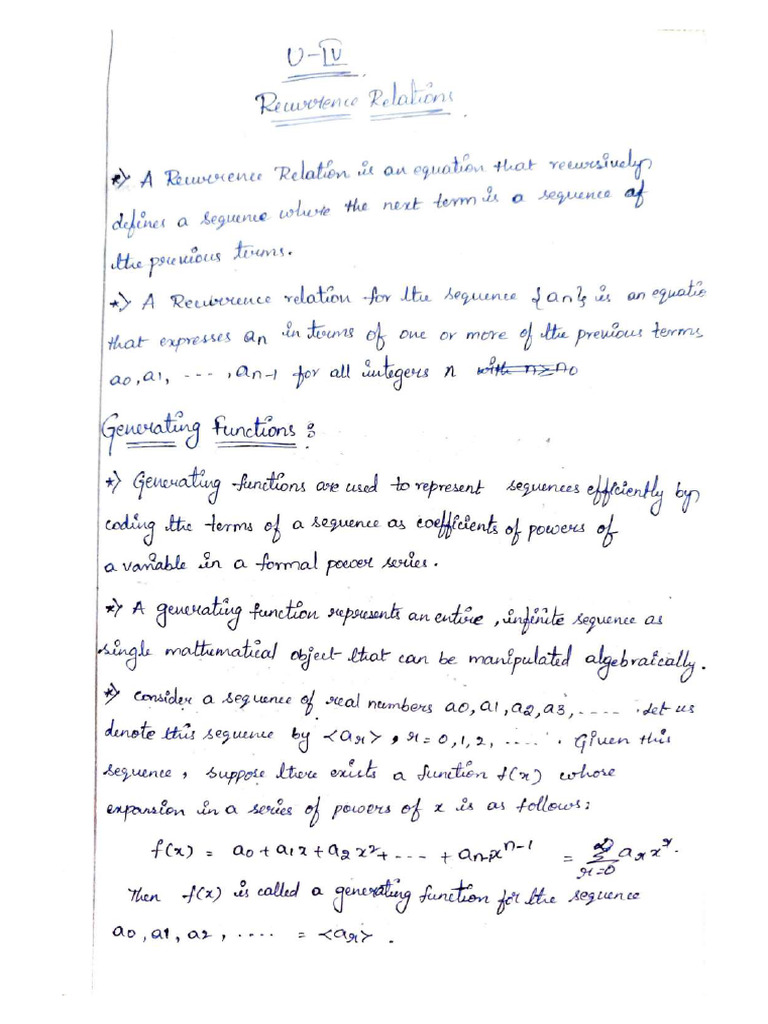 U-IV
Recurrence Relations.
*) A Recurrence Relation is an equation that recursively
defines a sequence where the next term is a sequence of
the previous terms.
*) A Recurrence relation for the sequence {an} is an equatio
that expresses an in terms of one or more of the previous terms
a0, a1, ---, an-1 for all integers n with n≥n0
Generating Functions :
*) Generating functions are used to represent sequences efficiently by
coding the terms of a sequence as coefficients of powers of
a variable in a formal power series.
*) A generating function represents an entire, infinite sequence as
single mathematical object that can be manipulated algebraically.
*) Consider a sequence of real numbers a0, a1, a2, a3, ..... . Let us
denote this sequence by <ar>, r = 0, 1, 2, ..... . Given this
sequence, suppose there exists a function f(x) whose
expansion in a series of powers of x is as follows:
f(x) = a0 + a1x + a2x² + --- + an-1x^n-1 = ∞Σr=0 ar x^r.
Then f(x) is called a generating function for the sequence
a0, a1, a2, .... = <ar>.